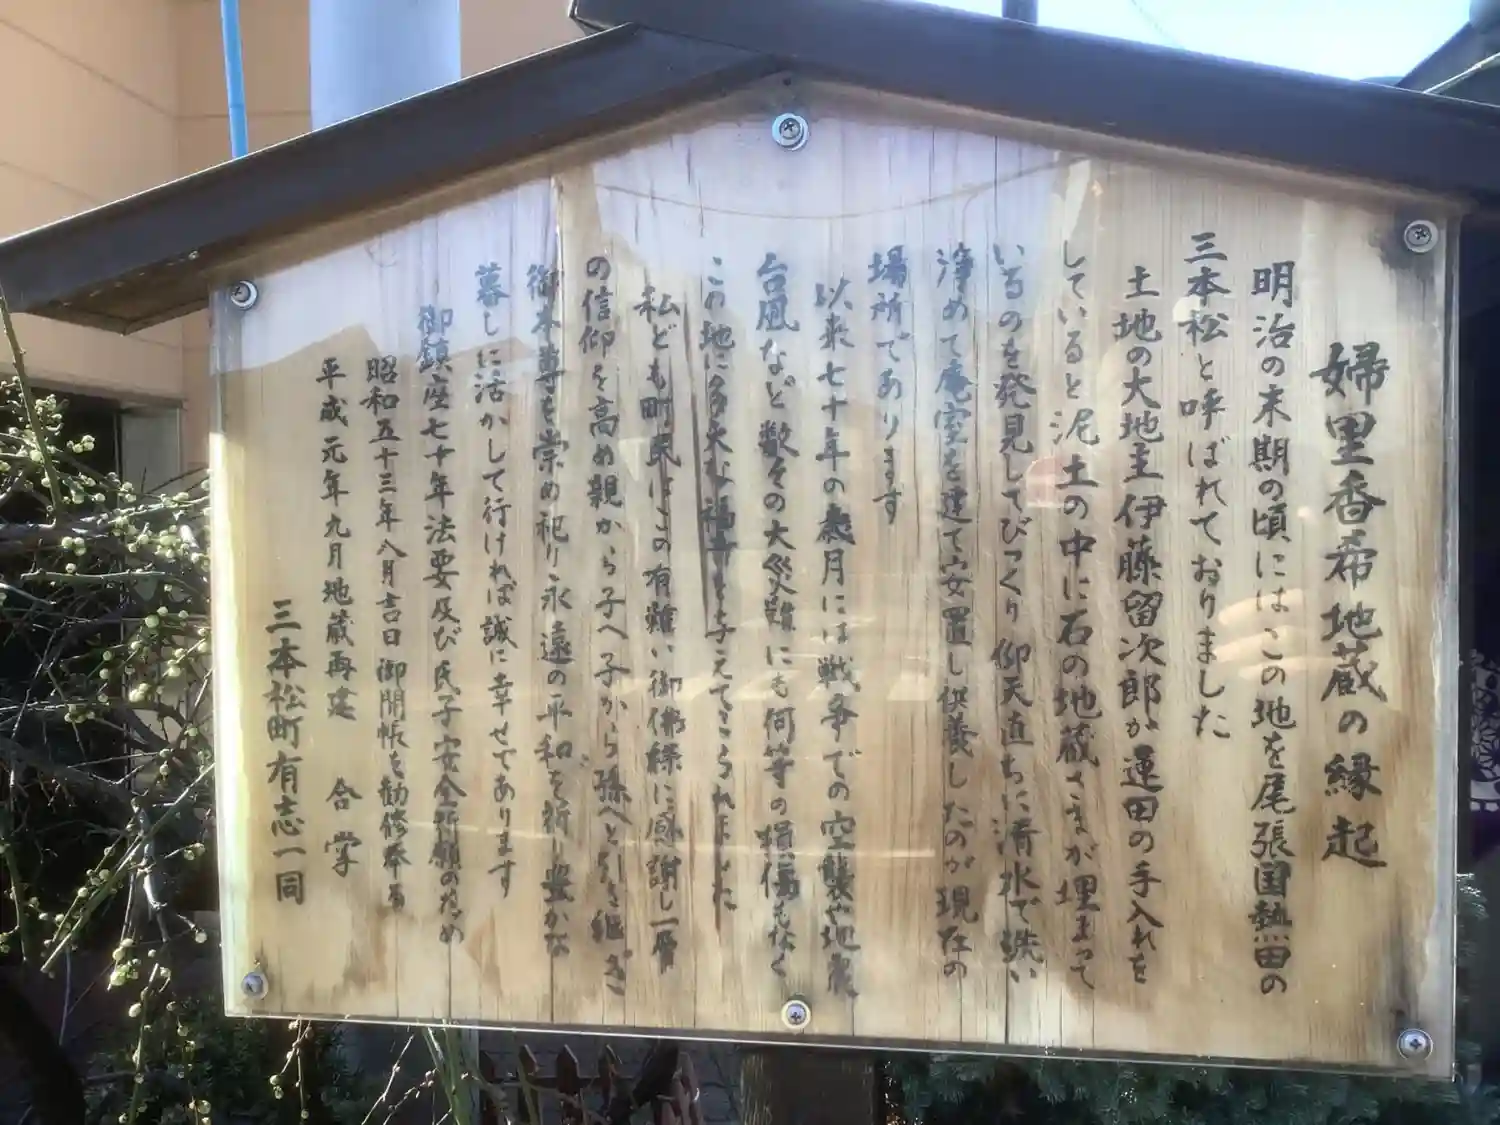 婦里香希地蔵の縁起
明治の末期の頃にはこの地を尾張国熱田の
三本松と呼ばれておりました
土地の大地主伊藤留次郎が蓮田の手入れを
していると泥土の中に石の地蔵さまが埋まって
いるのを発見してびっくり仰天直ちに清水で洗い
浄めて庵室を建て安置し供養したのが現在の
場所であります
以来七十年の歳月には戦争での空襲や地震
台風など数々の大災難にも何等の損傷もなく
この地に多大な福寺を与えてこられました
私ども町民はこの有難い御佛縁に感謝し一層
の信仰を高め親から子へ子から孫へと引き継ぎ
御本尊を崇め祀り永遠の平和を祈り豊かな
暮しに活かして行ければ誠に幸せであります
御鎮座七十年法要及び氏子安全祈願のため
昭和五十三年八月吉日御開帳を勧修奉る
平成元年九月地蔵再建 合掌
三本松町有志一同